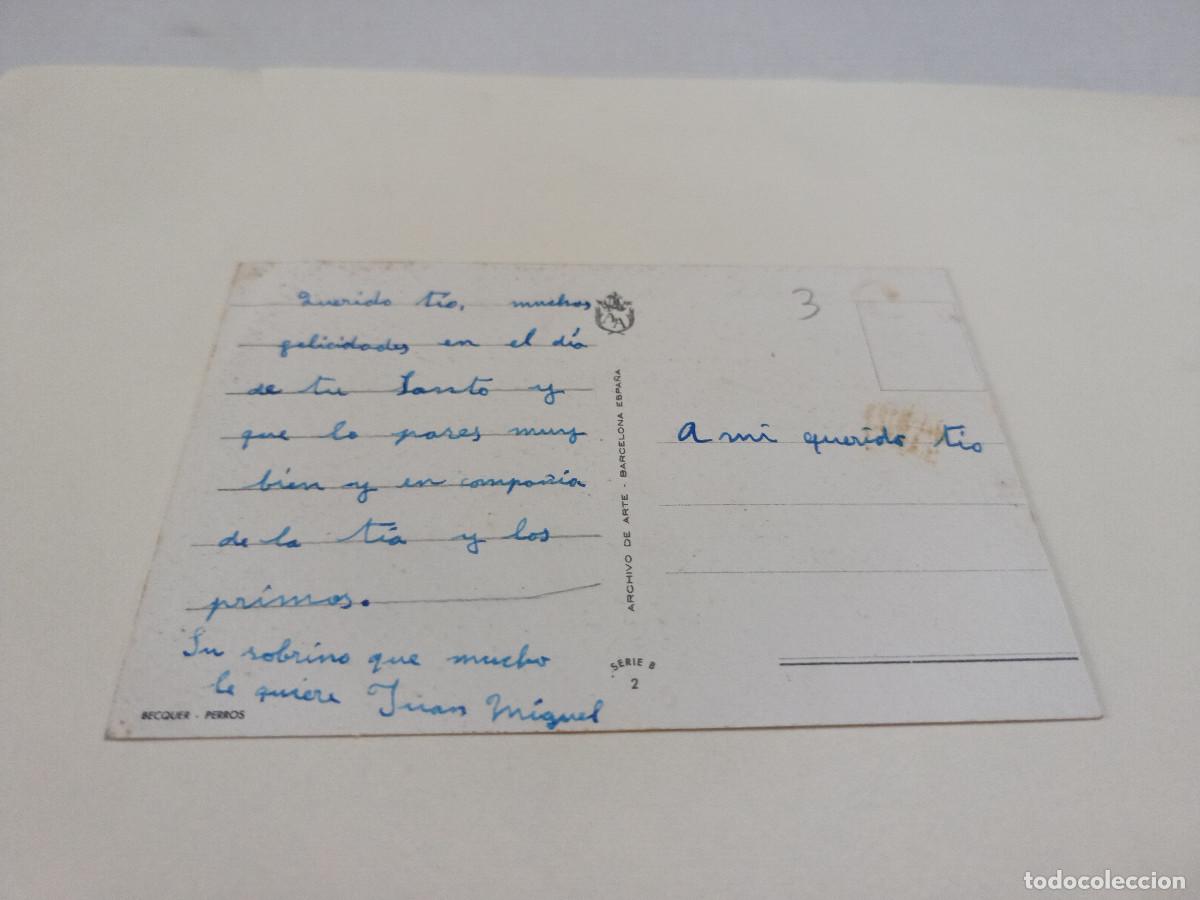 Querido tío, muchas
felicidades en el día
de tu Santo y
que lo pases muy
bien y en compañía
de la tía y los
primos.
Su sobrino que mucho
le quiere Juan Miguel
BECQUER - PERROS
ARCHIVO DE ARTE - BARCELONA ESPAÑA
SERIE B
2
3
A mi querido tio
todocoleccion